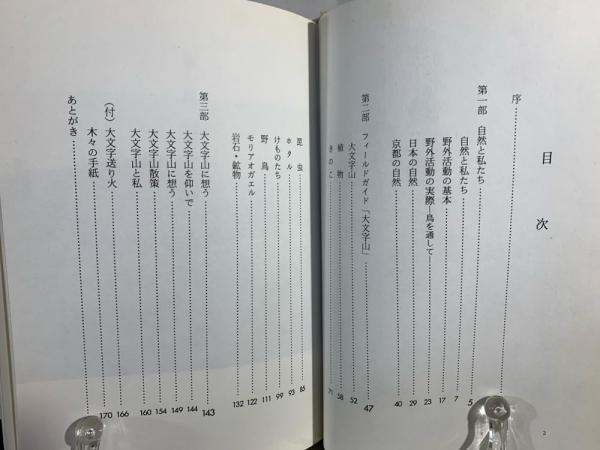 目次
序
第一部 自然と私たち 5
自然と私たち 7
野外活動の基本 17
野外活動の実際―鳥を通して― 23
日本の自然 29
京都の自然 40
第二部 フィールドガイド「大文字山」 47
大文字山 52
植物 58
きのこ 71
昆虫 85
ホタル 93
けものたち 99
野鳥 111
モリアオガエル 122
岩石・鉱物 132
第三部 大文字山に想う 143
大文字山を仰いで 144
大文字山に想う 149
大文字山散策 154
大文字山と私 160
(付) 大文字送り火 166
木々の手紙 170
あとがき
2